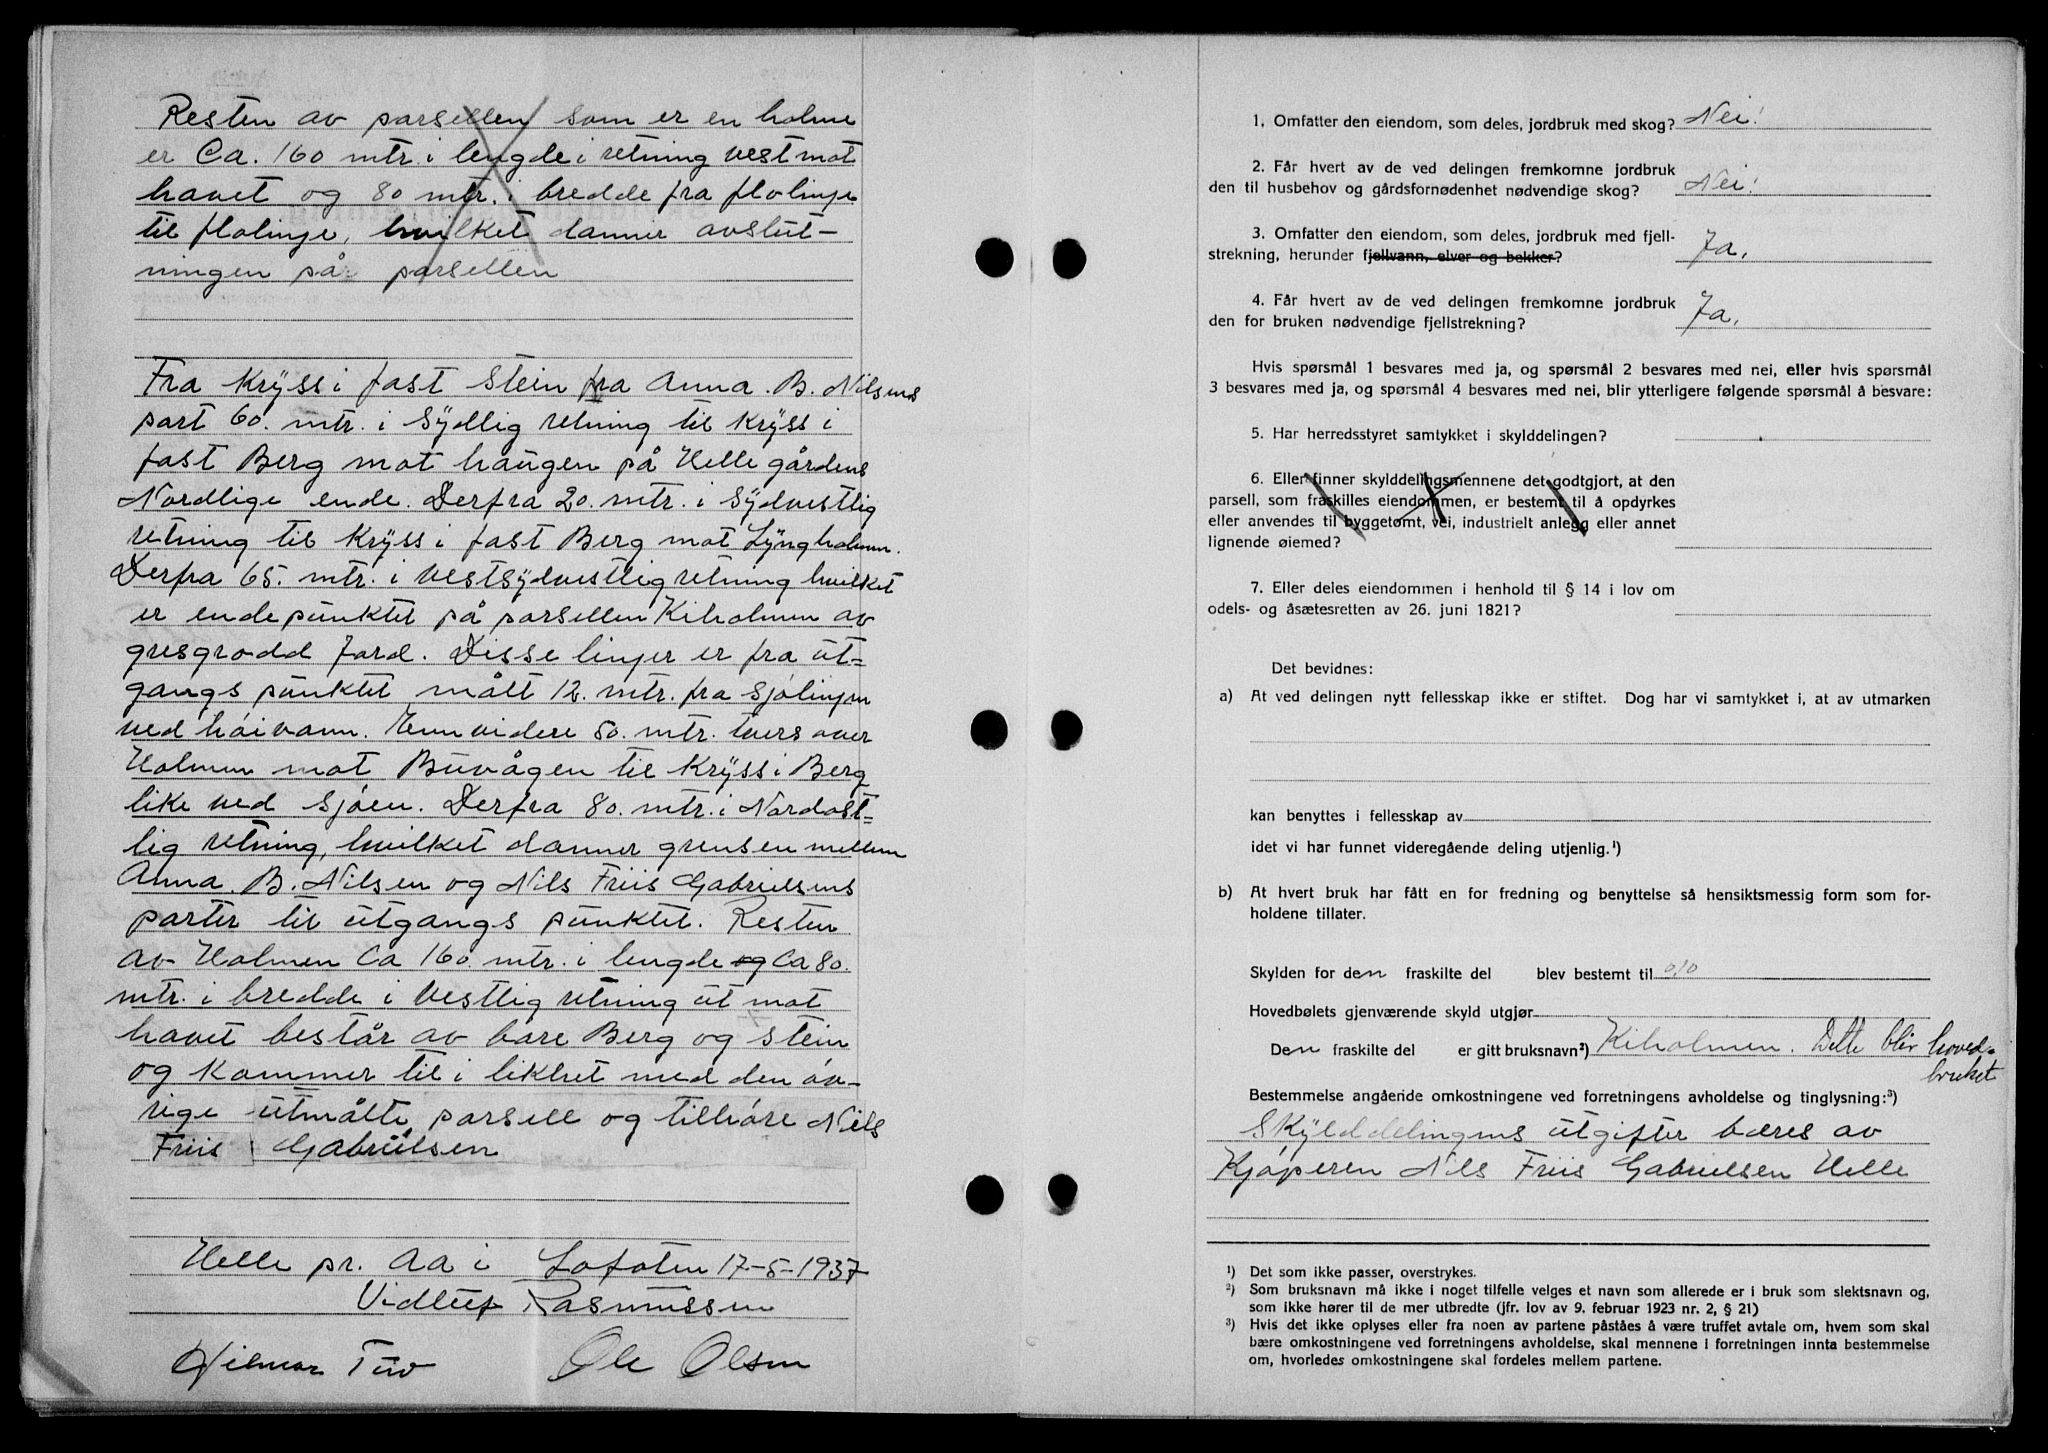 Resten av parsellen som er en holme
er Ca. 160 mtr. i lengde i retning vest mot
havet og 80 mtr. i bredde fra flolinje
til flolinje, hvilket danner avslut-
ningen på parsellen
Fra Kryss i fast Stein fra Anna. B. Nilsens
part 60. mtr. i Sydlig retning til Kryss i
fast Berg mot haugen på Helle gårdens
Nordlige ende. Derfra 20. mtr. i Sydvestlig
retning til Kryss i fast Berg mot Lyngholmen.
Derfra 65. mtr. i Vestsydvestlig retning hvilket
er ende punktet på parsellen Kiholmen av
gresgrodd Jord. Disse linjer er fra ut=
gangs punktet målt 12. mtr. fra Sjølinjen
ved høivann. Ennvidere 50. mtr. tvers over
Holmen mot Buvågen til Kryss i Berg
like ved Sjøen. Derfra 80. mtr. i Nordøst=
lig retning, hvilket danner grensen mellem
Anna. B. Nilsen og Nils Friis Gabrielsens
parter til utgangs punktet. Resten
av Holmen Ca 160. mtr. i lengde og Ca 80.
mtr. i bredde i Vestlig retning ut mot
havet består av bare Berg og stein
og kommer til i likhet med den øv-
rige utmålte parsell og tilhøre Nils
Friis Gabrielsen
Helle pr. Aa i Lofoten 17-5-1937
Vidluf Rasmussen
Hilmar Tuv Ole Olsen
1. Omfatter den eiendom, som deles, jordbruk med skog? Nei!
2. Får hvert av de ved delingen fremkomne jordbruk
den til husbehov og gårdsfornødenhet nødvendige skog? Nei!
3. Omfatter den eiendom, som deles, jordbruk med fjell-
strekning, herunder fjellvann, elver og bekker? Ja.
4. Får hvert av de ved delingen fremkomne jordbruk
den for bruken nødvendige fjellstrekning? Ja.
Hvis spørsmål 1 besvares med ja, og spørsmål 2 besvares med nei, eller hvis spørsmål
3 besvares med ja, og spørsmål 4 besvares med nei, blir ytterligere følgende spørsmål å besvare:
5. Har herredsstyret samtykket i skylddelingen?
6. Eller finner skylddelingsmennene det godtgjort, at den
parsell, som fraskilles eiendommen, er bestemt til å opdyrkes
eller anvendes til byggetomt, vei, industrielt anlegg eller annet
lignende øiemed?
7. Eller deles eiendommen i henhold til § 14 i lov om
odels- og åsætesretten av 26. juni 1821?
Det bevidnes:
a) At ved delingen nytt fellesskap ikke er stiftet. Dog har vi samtykket i, at av utmarken
kan benyttes i fellesskap av
idet vi har funnet videregående deling utjenlig.¹)
b) At hvert bruk har fått en for fredning og benyttelse så hensiktsmessig form som for-
holdene tillater.
Skylden for den fraskilte del blev bestemt til 0,10
Hovedbølets gjenværende skyld utgjør
Den fraskilte del er gitt bruksnavn²) Kiholmen. Dette blir hoved=
bruket
Bestemmelse angående omkostningene ved forretningens avholdelse og tinglysning:³)
Skylddelingens utgifter bæres av
Kjøperen Nils Friis Gabrielsen Helle
¹) Det som ikke passer, overstrykes.
²) Som bruksnavn må ikke i noget tilfelle velges et navn som allerede er i bruk som slektsnavn og,
som ikke hører til de mer utbredte (jfr. lov av 9. februar 1923 nr. 2, § 21)
³) Hvis det ikke oplyses eller fra noen av partene påståes å være truffet avtale om, hvem som skal
bære omkostningene ved forretningens avholdelse, skal mennene i forretningen innta bestemmelse
om, hvorledes omkostningene skal fordeles mellem partene.